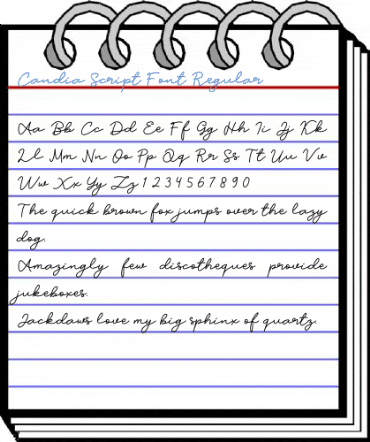 Candia Script Font Regular
Aa Bb Cc Dd Ee Ff Gg Hh Ii Jj Kk
Ll Mm Nn Oo Pp Qq Rr Ss Tt Uu Vv
Ww Xx Yy Zz 1 2 3 4 5 6 7 8 9 0
The quick brown fox jumps over the lazy
dog.
Amazingly few discotheques provide
jukeboxes.
Jackdaws love my big sphinx of quartz.